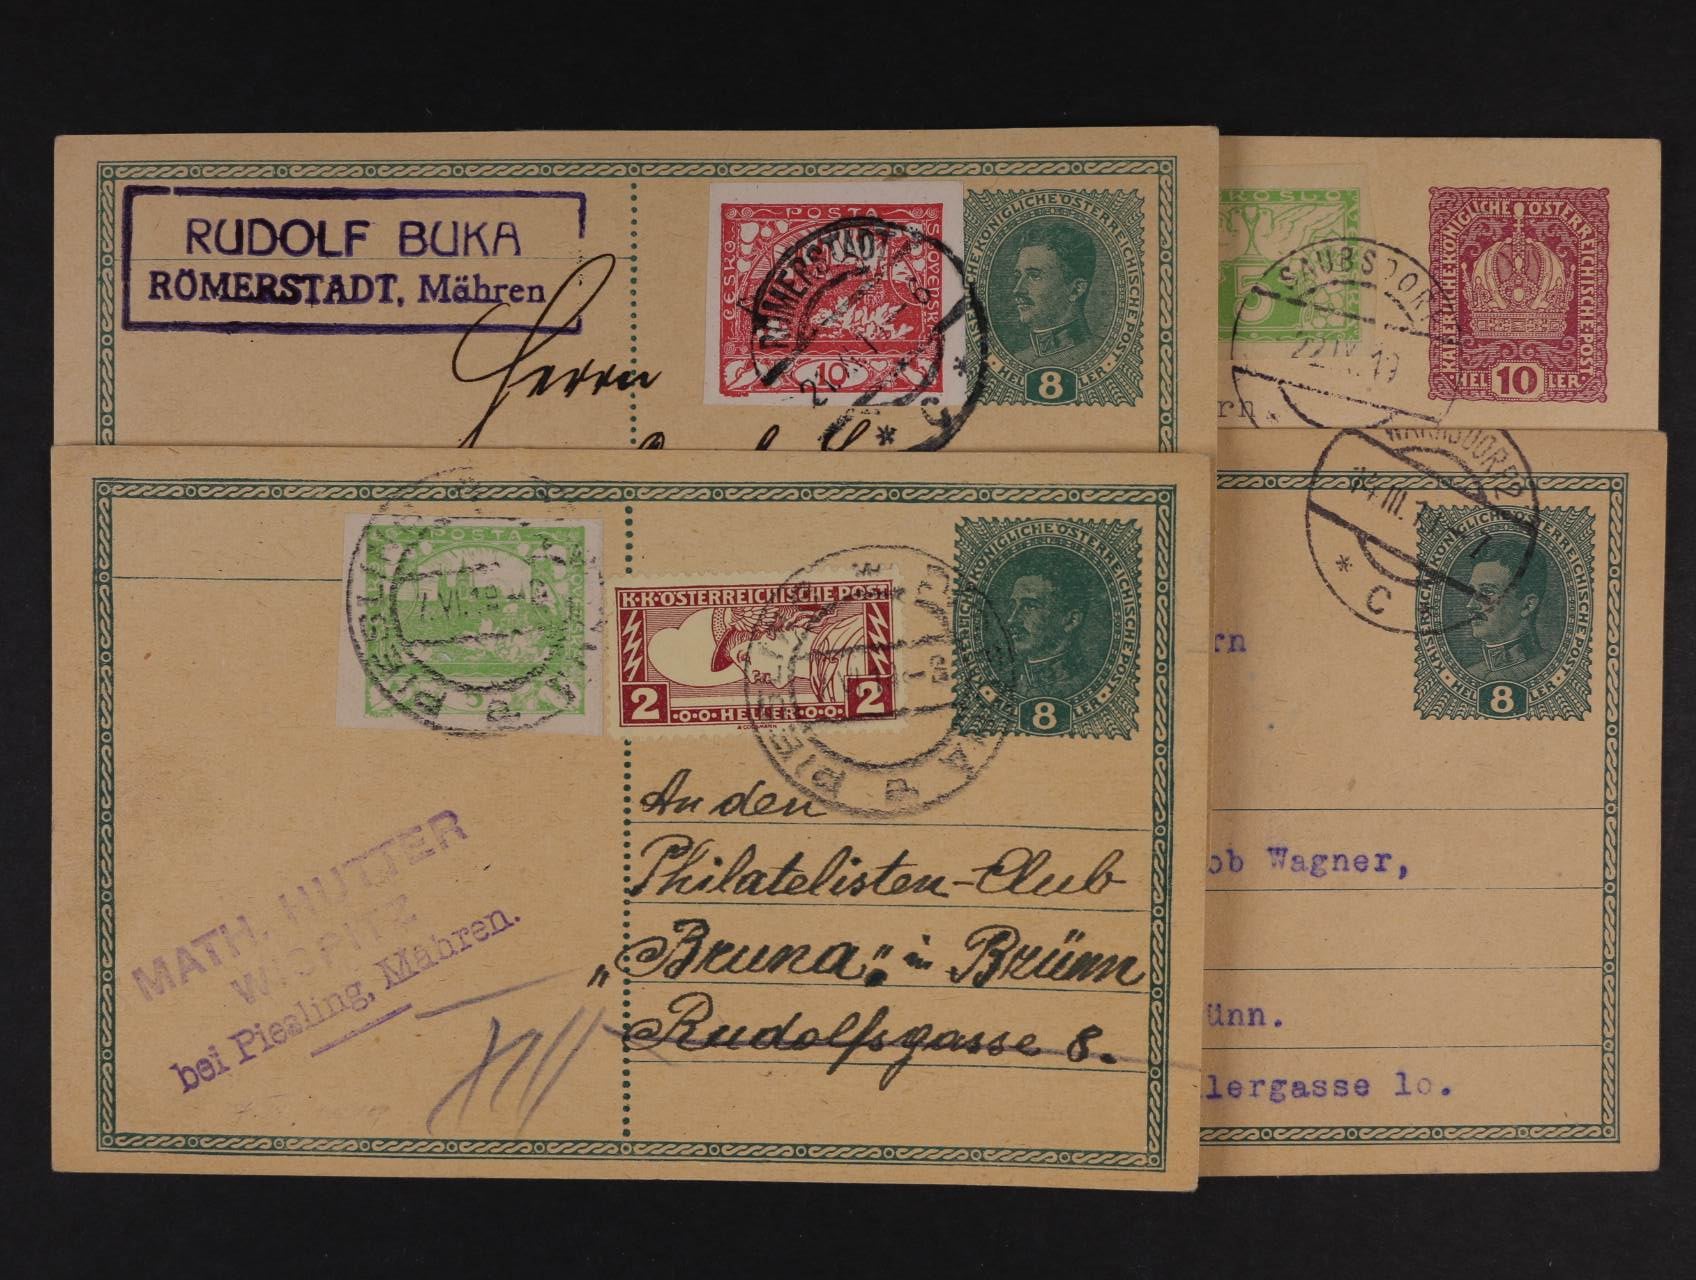 RUDOLF BUKA
RÖMERSTADT, Mähren
POSTA
ČESKO SLOVENSKÁ
10
RÖMERSTADT
C
KAISERLICHE KÖNIGLICHE ÖSTERREICHISCHE POST
8
HELLER
Herrn
5
SAUBSDORF
22.IV.19
KAISERLICHE KÖNIGLICHE ÖSTERREICHISCHE POST
HEL 10 LER
rn
POSTA
5
PIESLING
7.VI.19
K.K. ÖSTERREICHISCHE POST
2 HELLER 2
PIESLING
KAISERLICHE KÖNIGLICHE ÖSTERREICHISCHE POST
8
HELLER
MATH. HUTTER
WISPITZ
bei Piesling, Mähren.
An den
Philatelisten-Club
„Bruna" in Brünn
Rudolfsgasse 8.
WARNSDORF 2
C
KAISERLICHE KÖNIGLICHE ÖSTERREICHISCHE POST
HEL 8 LER
rn
ob Wagner,
ünn.
lergasse 10.